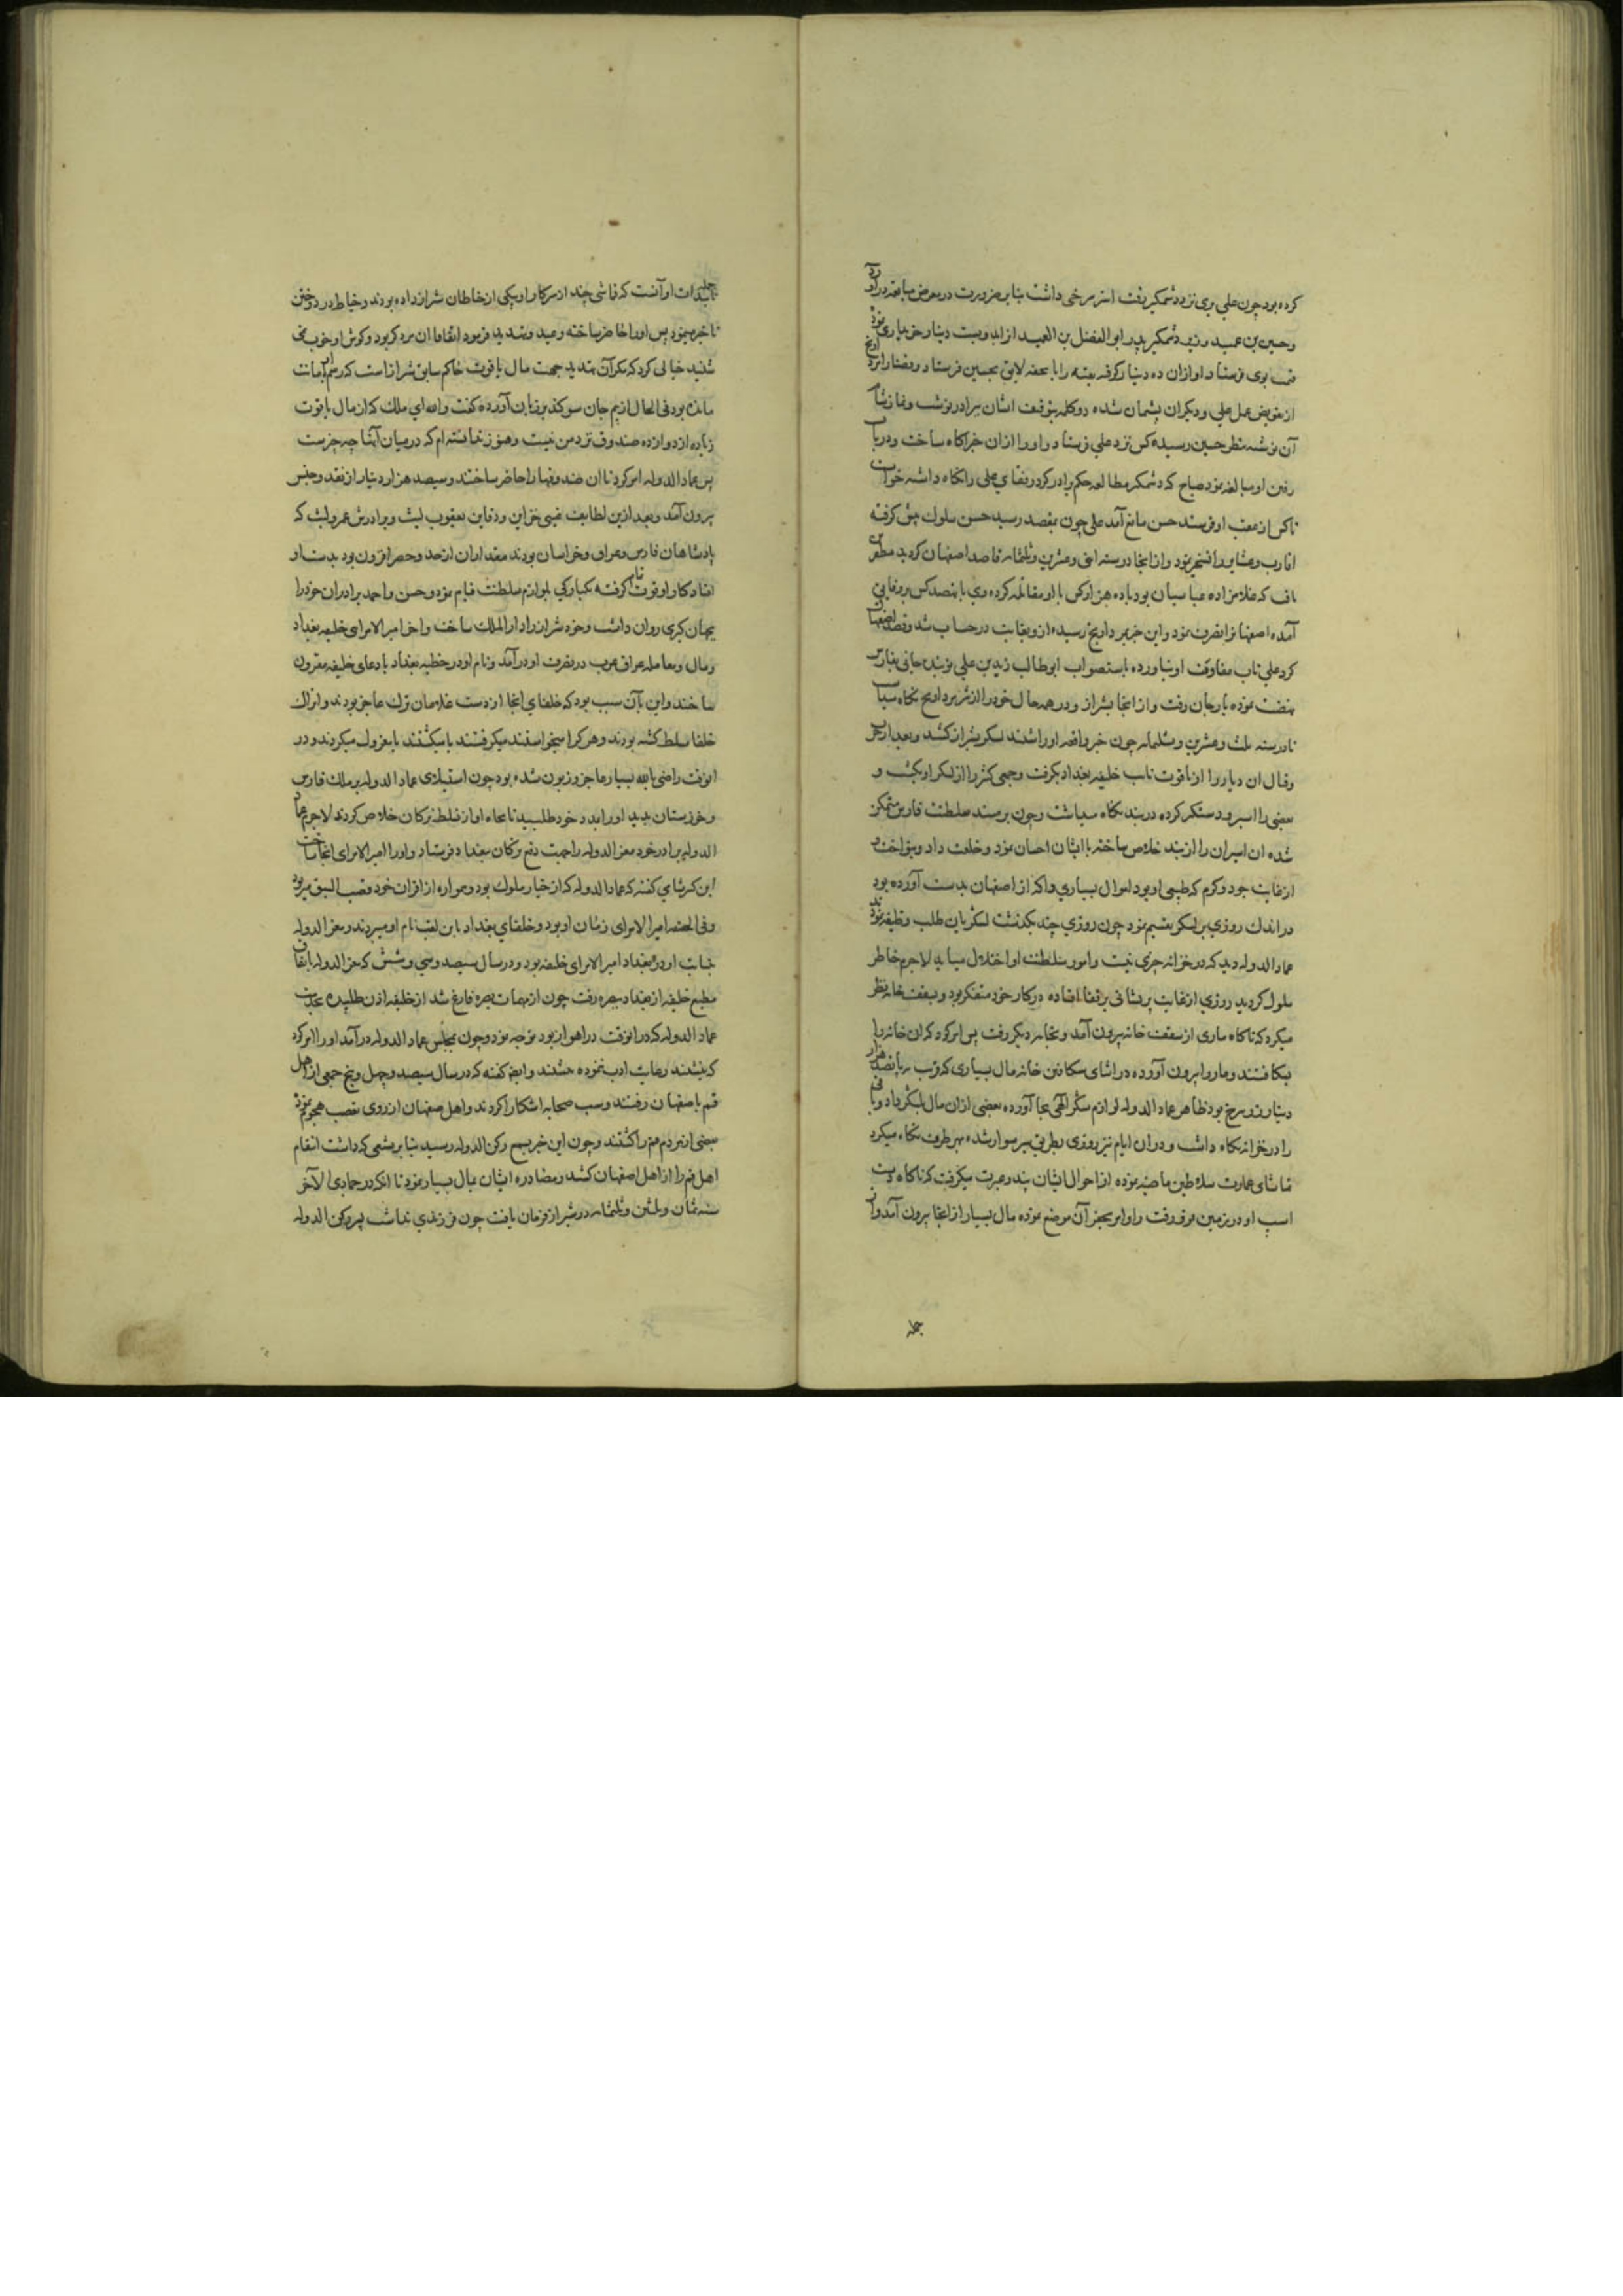 کرده بود چون علی بری نزد وشمکیر رفت استر سرخی داشت بنابر ضرورت در معرض مبایعه درآورد
وحسین بن عمید وزیر وشمکیر پدر ابو الفضل بن العمید از ابدویست دینار خریداری نمود
بوی فرستاد او ازان ده دینار کرفته بقیه را با تحفه لایق بحسین فرستاد
از تفویض عمل علی و دیکران پشمان شده دو کلمه بتوقیف ایشان ببرادر نوشت
آن نوشته بنظر حسین رسیده کس نزد علی فرستاد و او را ازان خبر اکاه ساخت ودر باب
رفتن او مبالغه نمود صباح که وشمکیر مطالعه حکم برادر کرد رفقای علی را نکاه داشته خواست
تا کس از عقب او فرستد حسن مانع آمد علی چون بمقصد رسید حسن سلوک پیش کرفته
اقارب وعشایر را نمود وازانجا در سنه احدی وعشرین وثلثمایه قاصد اصفهان کردید مظفر بن
یاقوت که غلامزاده عباسیان بود با ده هزار کس با او مقاتله کرده وی با نهصد کس برو غالب
آمده اصفهانرا تصرف نمود واین خبر بمرداویج رسیده ازو بغایت در حساب شد وقصد اصفهان
کرد علی تاب مقاومت او نیاورده باستصواب ابوطالب زید بن علی نوبندجانی بفارس
نهضت نموده بارجان رفت وازانجا بشیراز ودر همه حال خود را از شر مرداویج نکاه میداشت
تا در سنه ثلث وعشرین وثلثمایه چون خبر واقعه او را شنید لشکر بشیراز کشید وبعد از حرب
وقتال ان دیار را از یاقوت نایب خلیفه بغداد بکرفت وجمعی کثیر را از لشکر او بکشت و
بعضی را اسیر ودستکیر کرده در بند نکاه میداشت وچون بر مسند سلطنت فارس متمکن
شد ان اسیران را از بند خلاص ساخته با ایشان احسان نمود وخلعت داد وبنواخت و
از غایت جود وکرم که طبیعی او بود اموال بسیاری را که از اصفهان بدست آورده بود
در اندک روزی بر لشکر تقسیم نمود چون روزی چند بکذشت لشکریان طلب وظیفه نمودند
عماد الدوله دید که در خزانه چیزی نیست وامور سلطنت او اختلال میابد لاجرم خاطر
ملول کردید روزی از غایت پریشانی بر قفا افتاده در کار خود متفکر بود وبسقف خانه نظر
میکرد که ناکاه ماری از سقف خانه بیرون آمد وبخانه دیکر رفت پس امر کرد که ان خانه را
بشکافتند ومار را بیرون آورده در اثنای شکافتن خانه مال بسیاری که قریب به پانصد هزار
دینار زر سرخ بود ظاهر عماد الدوله لوازم شکر الهی بجا آورده بعضی ازان مال بلشکر داد وباقی
را در خزانه نکاه داشت ودران ایام نیز روزی بطریق سیر سوار شده بهر طرف نکاه میکرد
تماشای عمارت سلاطین ماضیه نموده از احوال ایشان پند وعبرت میکرفت که ناکاه دست
اسب او در زمین فرو رفت واو امر بحفر آن موضع نموده مال بسیار از انجا بیرون آمد واز
جمله
تاییدات او آنست که قماشی چند از سرکار او بیکی از خیاطان شیراز داده بودند وخیاط در دوختن
تاخیر مینمود پس او را حاضر ساخته وعید وتهدید فرمود اتفاقا ان مرد کر بود وکوش او خوب نمی
شنید خیالی کرد که مکر آن تهدید جهت مال یاقوت حاکم سابق شیراز است که برسم امانت
مانده بود فی الحال از بیم جان سوکند بر زبان آورده کفت والله ای ملک که از مال یاقوت
زیاده از دوازده صندوق نزد من نیست وهنوز ندانسته ام که در میان آنها چه چیزست
پس عماد الدوله امر کرد تا ان صندوقها را حاضر ساختند وسیصد هزار دینار از نقد وجنس
بیرون آمد وبعد ازین لطایف غیبی خزاین ودفاین یعقوب لیث وبرادرش عمرو لیث که
پادشاهان فارس وعراق وخراسان بودند مقدار ان ازحد وحصر افزون بود بدست او
افتاد کار او قوت تمام کرفته بکبارکی بلوازم سلطنت قیام نمود وحسن واحمد برادران خود را
بجهان کیری روان داشت وخود شیراز را دار الملک ساخت واخر امیر الامرای خلیفه بغداد
ومال ومعامله عراق عرب در تصرف او درآمد ونام او در خطبه بغداد با دعای خلیفه مقرون
ساختند واین بآن سبب بود که خلفای انجا از دست غلامان ترک عاجز بودند واتراک
خلفا مسلط کشته بودند وهر کرا میخواستند میکرفتند یا میکشتند یا معزول میکردند ودر
انوقت راضی بالله بسیار عاجز وزبون شده بود چون استیلای عماد الدوله بر ملک فارس
وخوزستان بدید او را بمدد خود طلبید تا بجاه او از تسلط ترکان خلاص کردند لاجرم عماد
الدوله برادر خود معز الدوله را جهت دفع ترکان ببغداد فرستاد واو را امیر الامرای انجا ساخت
ابن کثیر شامی کفته که عماد الدوله که از خیار ملوک بود وهمواره از اقران خود قصب السبق میربود
وفی الحقیقه امیر الامرای زمان او بود وخلفای بغداد باین لقب نام او میبردند ومعز الدوله
بنیابت او در بغداد امیر الامرای خلیفه بود ودر سال سیصد وسی وشش که معز الدوله باتفاق
مطیع خلیفه از بغداد ببصره رفت چون از مهمات بصره فارغ شد از خلیفه اذن طلبیده بخدمت
عماد الدوله که در انوقت در اهواز بود توجه نمود وچون بمجلس عماد الدوله درآمد او را امر کرد
که بنشیند رعایت ادب نموده ننشست وایضا کفته که در سال سیصد وچهل وپنج جمعی از اهل
قم باصفهان رفتند وسب صحابه اشکارا کردند واهل اصفهان از روی تعصب هجوم نموده
بعضی از مردم قم را کشتند وچون این خبر بسمع رکن الدوله رسید بنابر تشیعی که داشت انتقام
اهل قم را از اهل اصفهان کشید ومصادره ایشان بمال بسیار نمود تا انکه در جمادی الآخر
سنه ثمان وثلثین وثلثمایه در شیراز فرمان یافت چون فرزندی نداشت پسر رکن الدوله